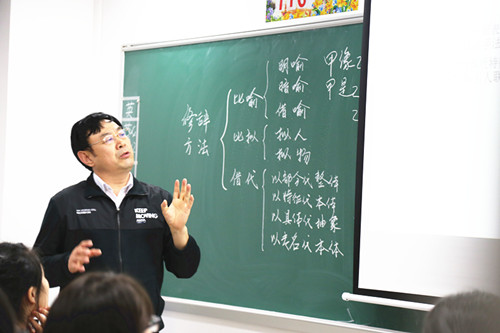 修辞
方法
比喻
明喻 甲像乙
暗喻 甲是乙
借喻 乙
比拟
拟人
拟物
借代
以部分代整体
以特征代本体
以具体代抽象
以专名代本体
英
KEEP
MOVING